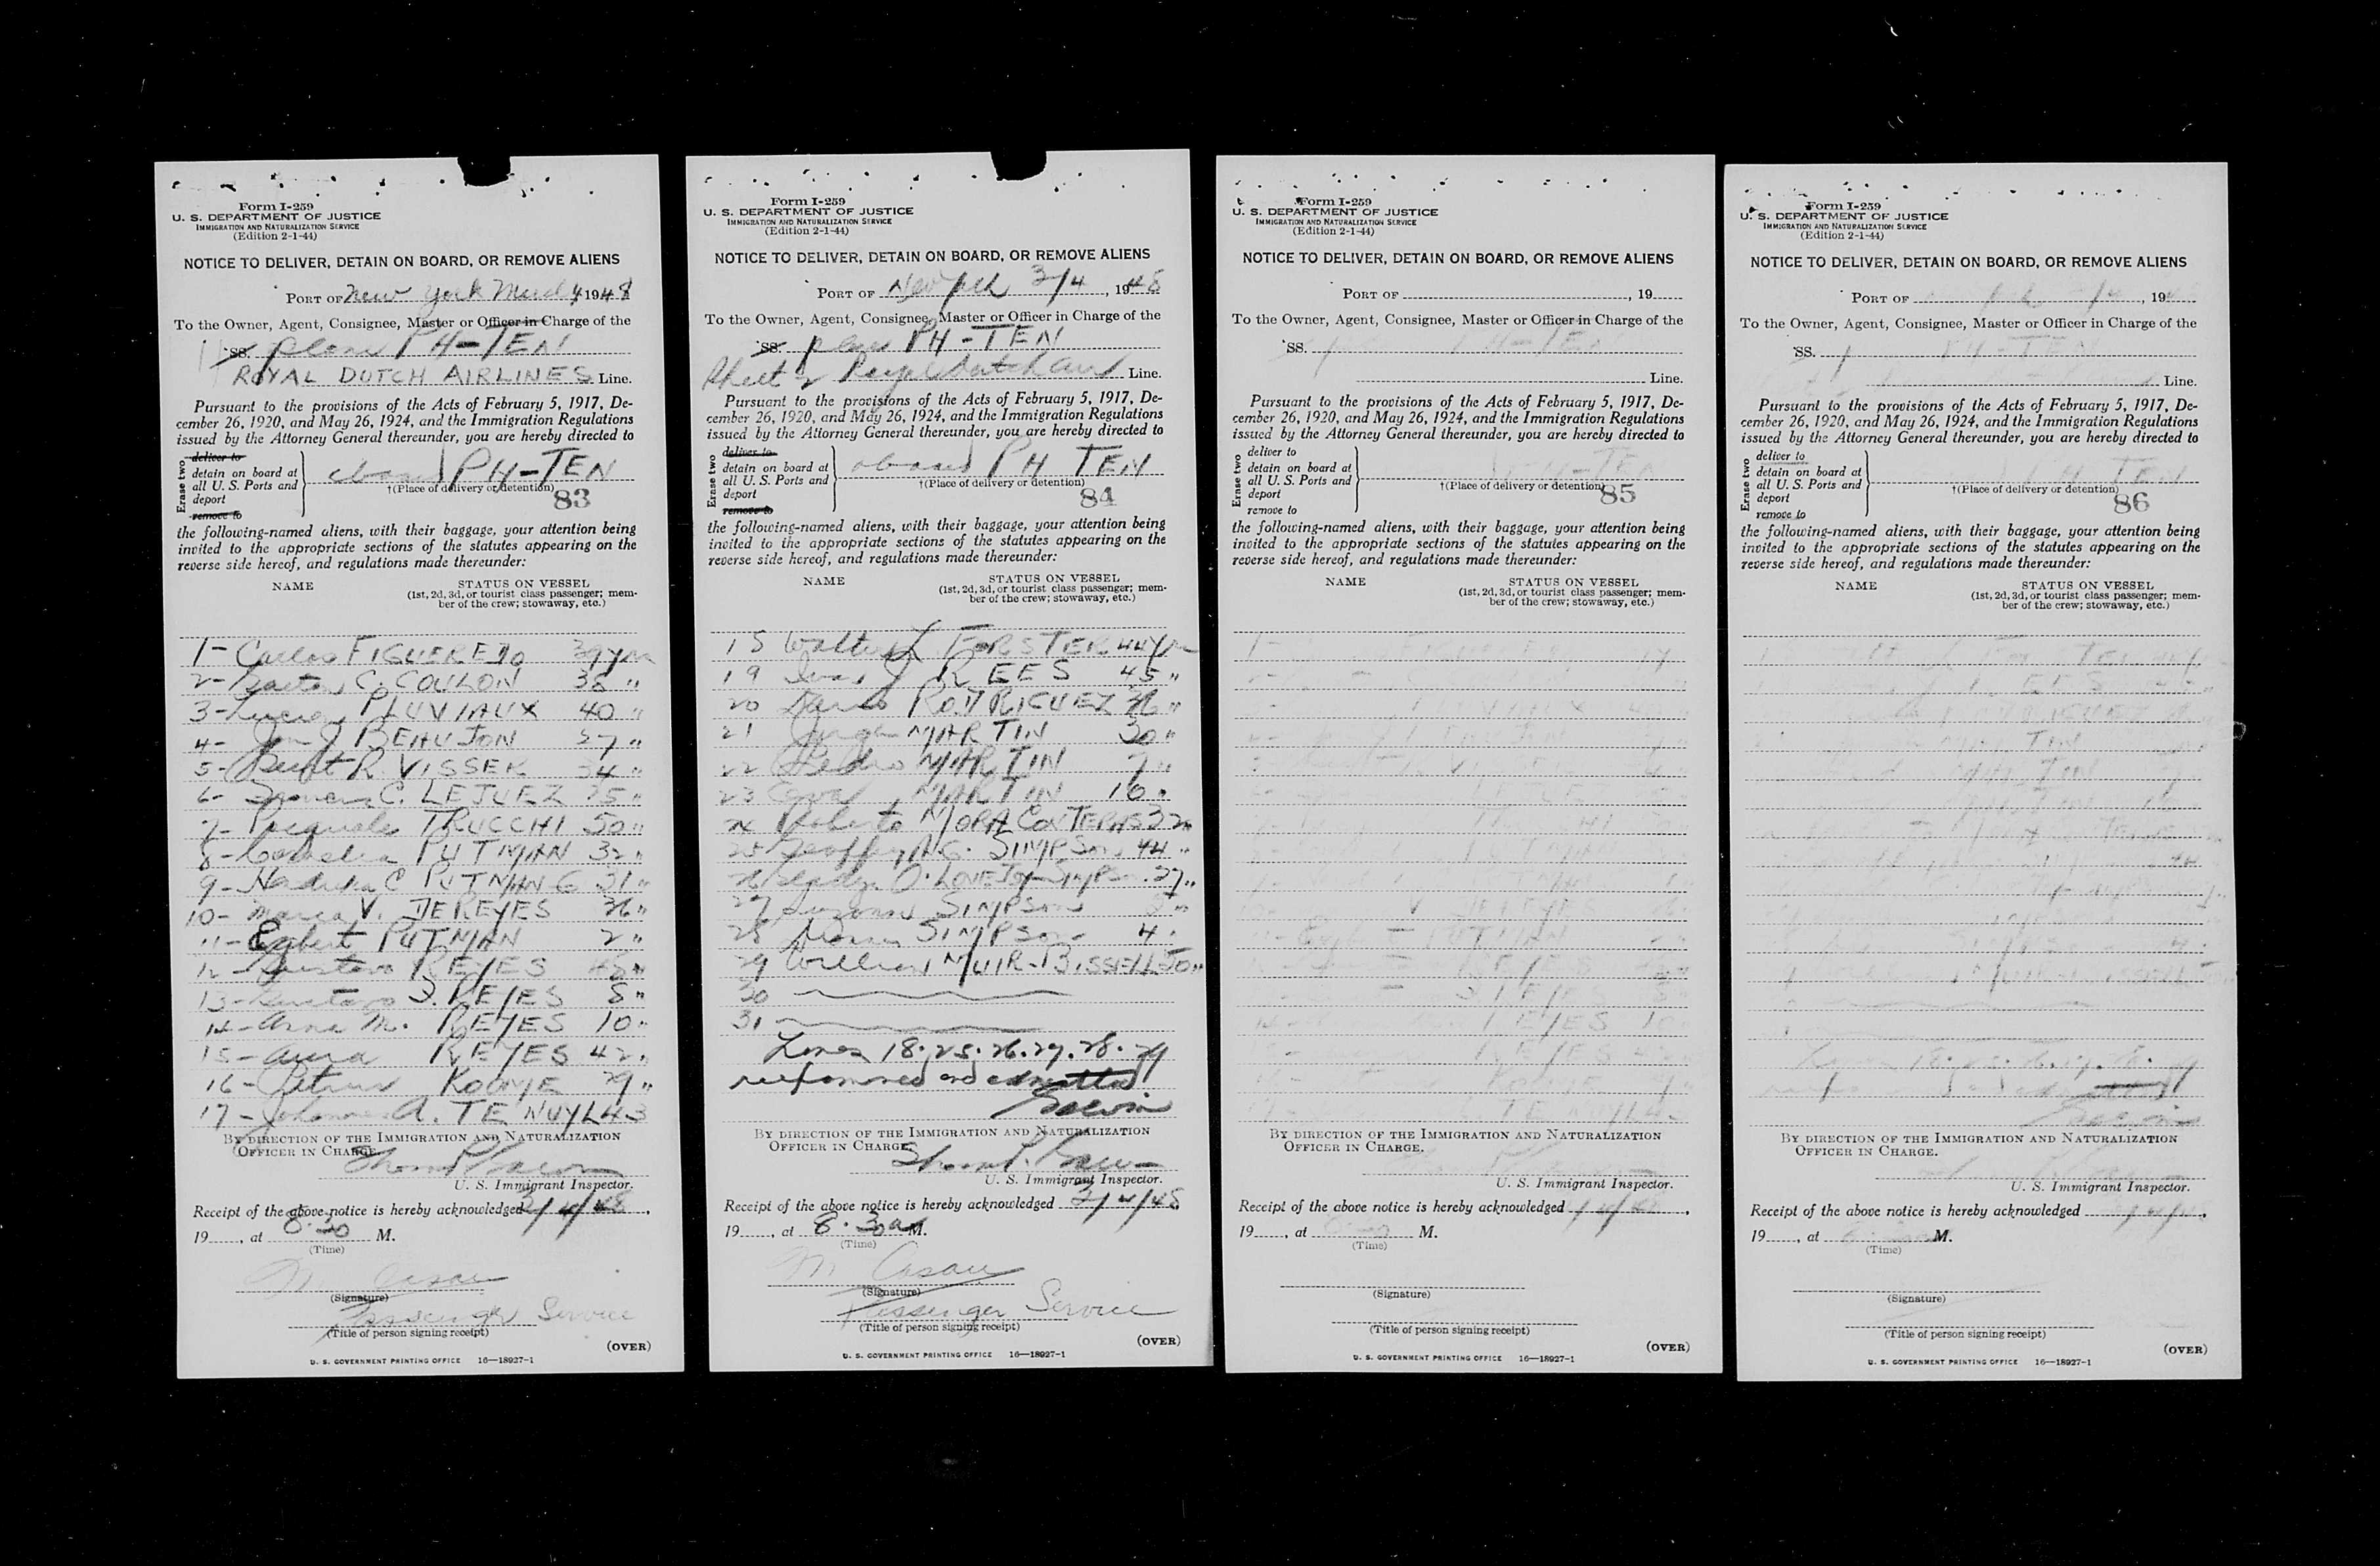 Form I-259
U. S. DEPARTMENT OF JUSTICE
IMMIGRATION AND NATURALIZATION SERVICE
(Edition 2-1-44)
NOTICE TO DELIVER, DETAIN ON BOARD, OR REMOVE ALIENS
PORT OF New York March 4, 1948
To the Owner, Agent, Consignee, Master or Officer in Charge of the
SS. plane PH-TEN
ROYAL DUTCH AIRLINES Line.
Pursuant to the provisions of the Acts of February 5, 1917, De-
cember 26, 1920, and May 26, 1924, and the Immigration Regulations
issued by the Attorney General thereunder, you are hereby directed to
Erase two
deliver to
detain on board at
all U. S. Ports and
deport
remove to
aboard PH-TEN
†(Place of delivery or detention)
83
the following-named aliens, with their baggage, your attention being
invited to the appropriate sections of the statutes appearing on the
reverse side hereof, and regulations made thereunder:
NAME STATUS ON VESSEL
(1st, 2d, 3d, or tourist class passenger; mem-
ber of the crew; stowaway, etc.)
1- Carlos FIGUEREDO 39 yrs
2- C. COULON 38 "
3- Lucien PLUVIAUX 40 "
4- Jan J BEAUJON "
5- R. VISSER 34 "
6- C. LEJUEZ 35 "
7- Pasquale TRUCCHI 50 "
8- Cornelia PUTMAN 32 "
9- Hendrika C PUTMAN G 31 "
10- Maria V. DE REYES 36 "
11- Egbert PUTMAN 2 "
12- Gustavo REYES "
13- Gustavo J. REYES 8 "
14- Anna M. REYES 10 "
15- Aura REYES 42 "
16- Petrus KOOYE 29 "
17- Johannes A. TE NUYL 43
BY DIRECTION OF THE IMMIGRATION AND NATURALIZATION
OFFICER IN CHARGE.
U. S. Immigrant Inspector.
Receipt of the above notice is hereby acknowledged 3/4/48,
19 , at 8:30 M.
(Time)
M Casau
(Signature)
Passenger Service
(Title of person signing receipt)
(OVER)
U. S. GOVERNMENT PRINTING OFFICE 16—18927-1
Form I-259
U. S. DEPARTMENT OF JUSTICE
IMMIGRATION AND NATURALIZATION SERVICE
(Edition 2-1-44)
NOTICE TO DELIVER, DETAIN ON BOARD, OR REMOVE ALIENS
PORT OF New York 3/4, 1948
To the Owner, Agent, Consignee, Master or Officer in Charge of the
SS. plane PH-TEN
Sheet 2 Royal Dutch Air Line.
Pursuant to the provisions of the Acts of February 5, 1917, De-
cember 26, 1920, and May 26, 1924, and the Immigration Regulations
issued by the Attorney General thereunder, you are hereby directed to
Erase two
deliver to
detain on board at
all U. S. Ports and
deport
remove to
aboard PH TEN
†(Place of delivery or detention)
84
the following-named aliens, with their baggage, your attention being
invited to the appropriate sections of the statutes appearing on the
reverse side hereof, and regulations made thereunder:
NAME STATUS ON VESSEL
(1st, 2d, 3d, or tourist class passenger; mem-
ber of the crew; stowaway, etc.)
18 Walter L FORSTER 44 yrs
19 Ivan J REES 45 "
20 RODRIGUEZ 36 "
21 MARTIN 30 "
22 Pedro MARTIN 7 "
23 MARTIN 16 "
24 Roberto MORA CONTERAS 32 "
25 Geoffrey A.G. SIMPSON 44 "
26 Gladys O. LOVEJOY SIMPSON 37 "
27 Suzanne SIMPSON "
28 SIMPSON 4 "
29 William MUIR-BISSELL 50 "
30
31
Lines 18. 25. 26. 27. 28. 29
reexamined and admitted
BY DIRECTION OF THE IMMIGRATION AND NATURALIZATION
OFFICER IN CHARGE.
U. S. Immigrant Inspector.
Receipt of the above notice is hereby acknowledged 3/4/48
19 , at 8:30 a M.
(Time)
M Casau
(Signature)
Passenger Service
(Title of person signing receipt)
(OVER)
U. S. GOVERNMENT PRINTING OFFICE 16—18927-1
Form I-259
U. S. DEPARTMENT OF JUSTICE
IMMIGRATION AND NATURALIZATION SERVICE
(Edition 2-1-44)
NOTICE TO DELIVER, DETAIN ON BOARD, OR REMOVE ALIENS
PORT OF , 19
To the Owner, Agent, Consignee, Master or Officer in Charge of the
SS. PH-TEN
Line.
Pursuant to the provisions of the Acts of February 5, 1917, De-
cember 26, 1920, and May 26, 1924, and the Immigration Regulations
issued by the Attorney General thereunder, you are hereby directed to
Erase two
deliver to
detain on board at
all U. S. Ports and
deport
remove to
†(Place of delivery or detention)
85
the following-named aliens, with their baggage, your attention being
invited to the appropriate sections of the statutes appearing on the
reverse side hereof, and regulations made thereunder:
NAME STATUS ON VESSEL
(1st, 2d, 3d, or tourist class passenger; mem-
ber of the crew; stowaway, etc.)
BY DIRECTION OF THE IMMIGRATION AND NATURALIZATION
OFFICER IN CHARGE.
U. S. Immigrant Inspector.
Receipt of the above notice is hereby acknowledged ,
19 , at M.
(Time)
(Signature)
(Title of person signing receipt)
(OVER)
U. S. GOVERNMENT PRINTING OFFICE 16—18927-1
Form I-259
U. S. DEPARTMENT OF JUSTICE
IMMIGRATION AND NATURALIZATION SERVICE
(Edition 2-1-44)
NOTICE TO DELIVER, DETAIN ON BOARD, OR REMOVE ALIENS
PORT OF , 19
To the Owner, Agent, Consignee, Master or Officer in Charge of the
SS. PH-TEN
Line.
Pursuant to the provisions of the Acts of February 5, 1917, De-
cember 26, 1920, and May 26, 1924, and the Immigration Regulations
issued by the Attorney General thereunder, you are hereby directed to
Erase two
deliver to
detain on board at
all U. S. Ports and
deport
remove to
TEN
†(Place of delivery or detention)
86
the following-named aliens, with their baggage, your attention being
invited to the appropriate sections of the statutes appearing on the
reverse side hereof, and regulations made thereunder:
NAME STATUS ON VESSEL
(1st, 2d, 3d, or tourist class passenger; mem-
ber of the crew; stowaway, etc.)
BY DIRECTION OF THE IMMIGRATION AND NATURALIZATION
OFFICER IN CHARGE.
U. S. Immigrant Inspector.
Receipt of the above notice is hereby acknowledged ,
19 , at M.
(Time)
(Signature)
(Title of person signing receipt)
(OVER)
U. S. GOVERNMENT PRINTING OFFICE 16—18927-1